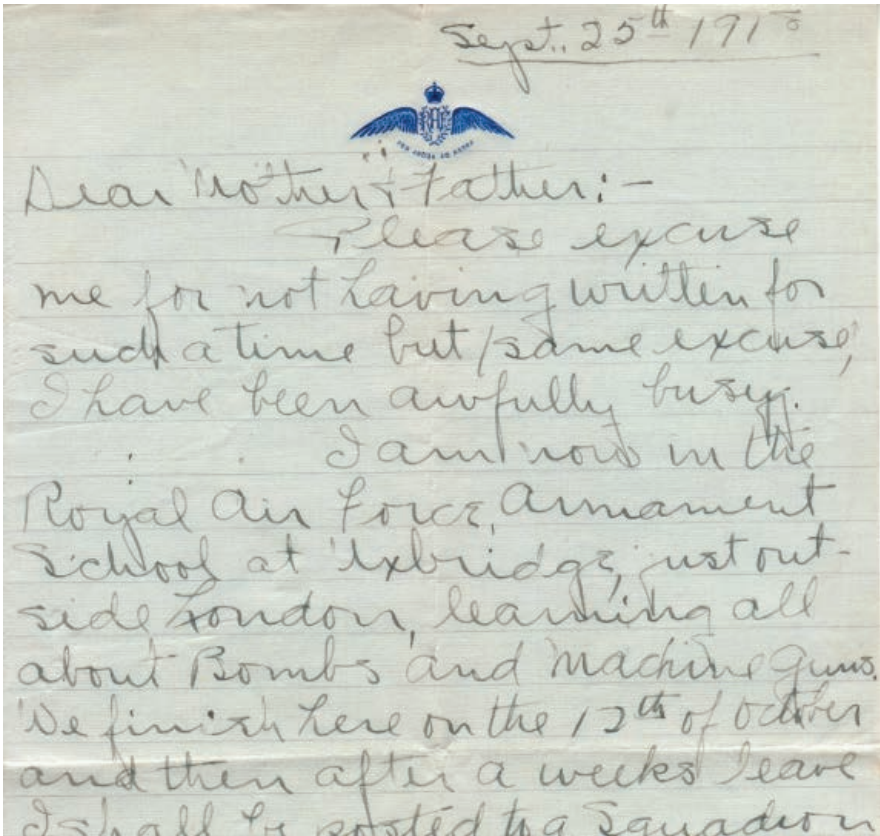 Sept. 25th 191
RAF
PER ARDUA AD ASTRA
Dear Mother & Father:-
Please excuse
me for not having written for
such a time but, same excuse,
I have been awfully busy.
I am now in the
Royal Air Force, Armament
School at Uxbridge, just out-
side London, learning all
about Bombs and Machine Guns.
We finish here on the 12th of October
and then after a weeks leave
I shall be posted to a Squadron